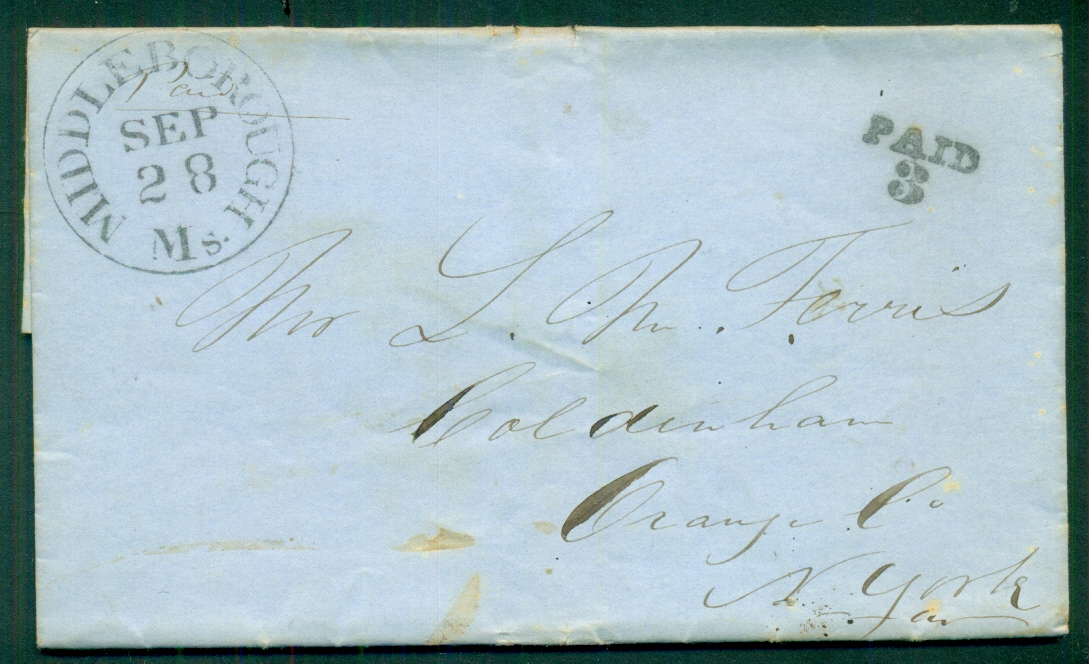 MIDDLEBOROUGH
Paid
SEP
28
Ms.
PAID
3
Mr L. M. Ferris
Coldenham
Orange Co
N. York